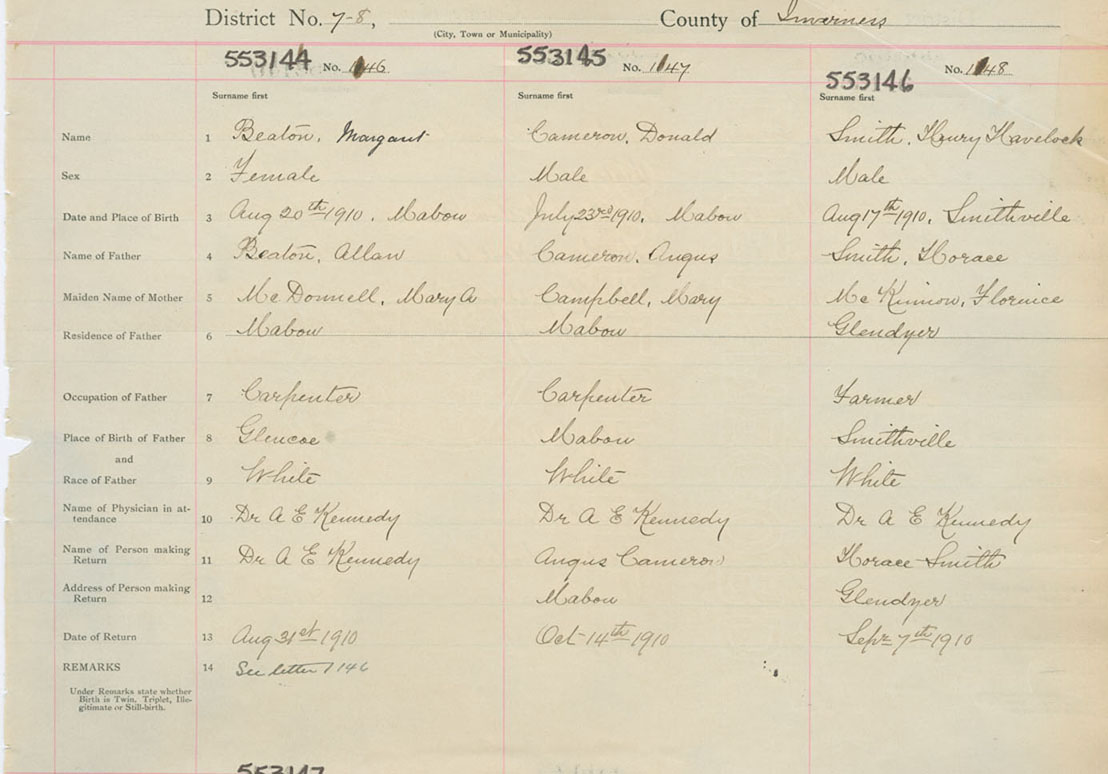 District No. 7-8, County of Inverness
(City, Town or Municipality)
553144 No. 1146 553145 No. 1147 553146 No. 1148
Surname first Surname first Surname first
Name 1 Beaton, Margaret Cameron, Donald Smith, Henry Havelock
Sex 2 Female Male Male
Date and Place of Birth 3 Aug 20th 1910, Mabou July 23rd 1910, Mabou Aug 17th 1910, Smithville
Name of Father 4 Beaton, Allan Cameron, Angus Smith, Horace
Maiden Name of Mother 5 McDonnell, Mary A Campbell, Mary McKinnon, Florence
Residence of Father 6 Mabou Mabou Glendyer
Occupation of Father 7 Carpenter Carpenter Farmer
Place of Birth of Father 8 Glencoe Mabou Smithville
and
Race of Father 9 White White White
Name of Physician in at-
tendance 10 Dr A E Kennedy Dr A E Kennedy Dr A E Kennedy
Name of Person making
Return 11 Dr A E Kennedy Angus Cameron Horace Smith
Address of Person making
Return 12 Mabou Glendyer
Date of Return 13 Aug 31st 1910 Oct 14th 1910 Sept 7th 1910
REMARKS 14 See letter 1146
Under Remarks state whether
Birth is Twin, Triplet, Ille-
gitimate or Still-birth.
553147